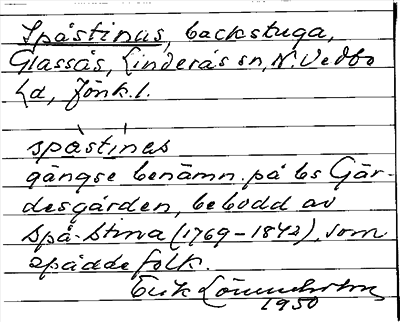 Spåstinas, backstuga,
Glassås, Linderås sn, N. Vedbo
hd, Jönk. l.
spåstinas
gängse benämn. på bs Gär-
desgården, bebodd av
Spå-Stina (1769–1842), som
spådde folk.
Erik Lönnholm
1950